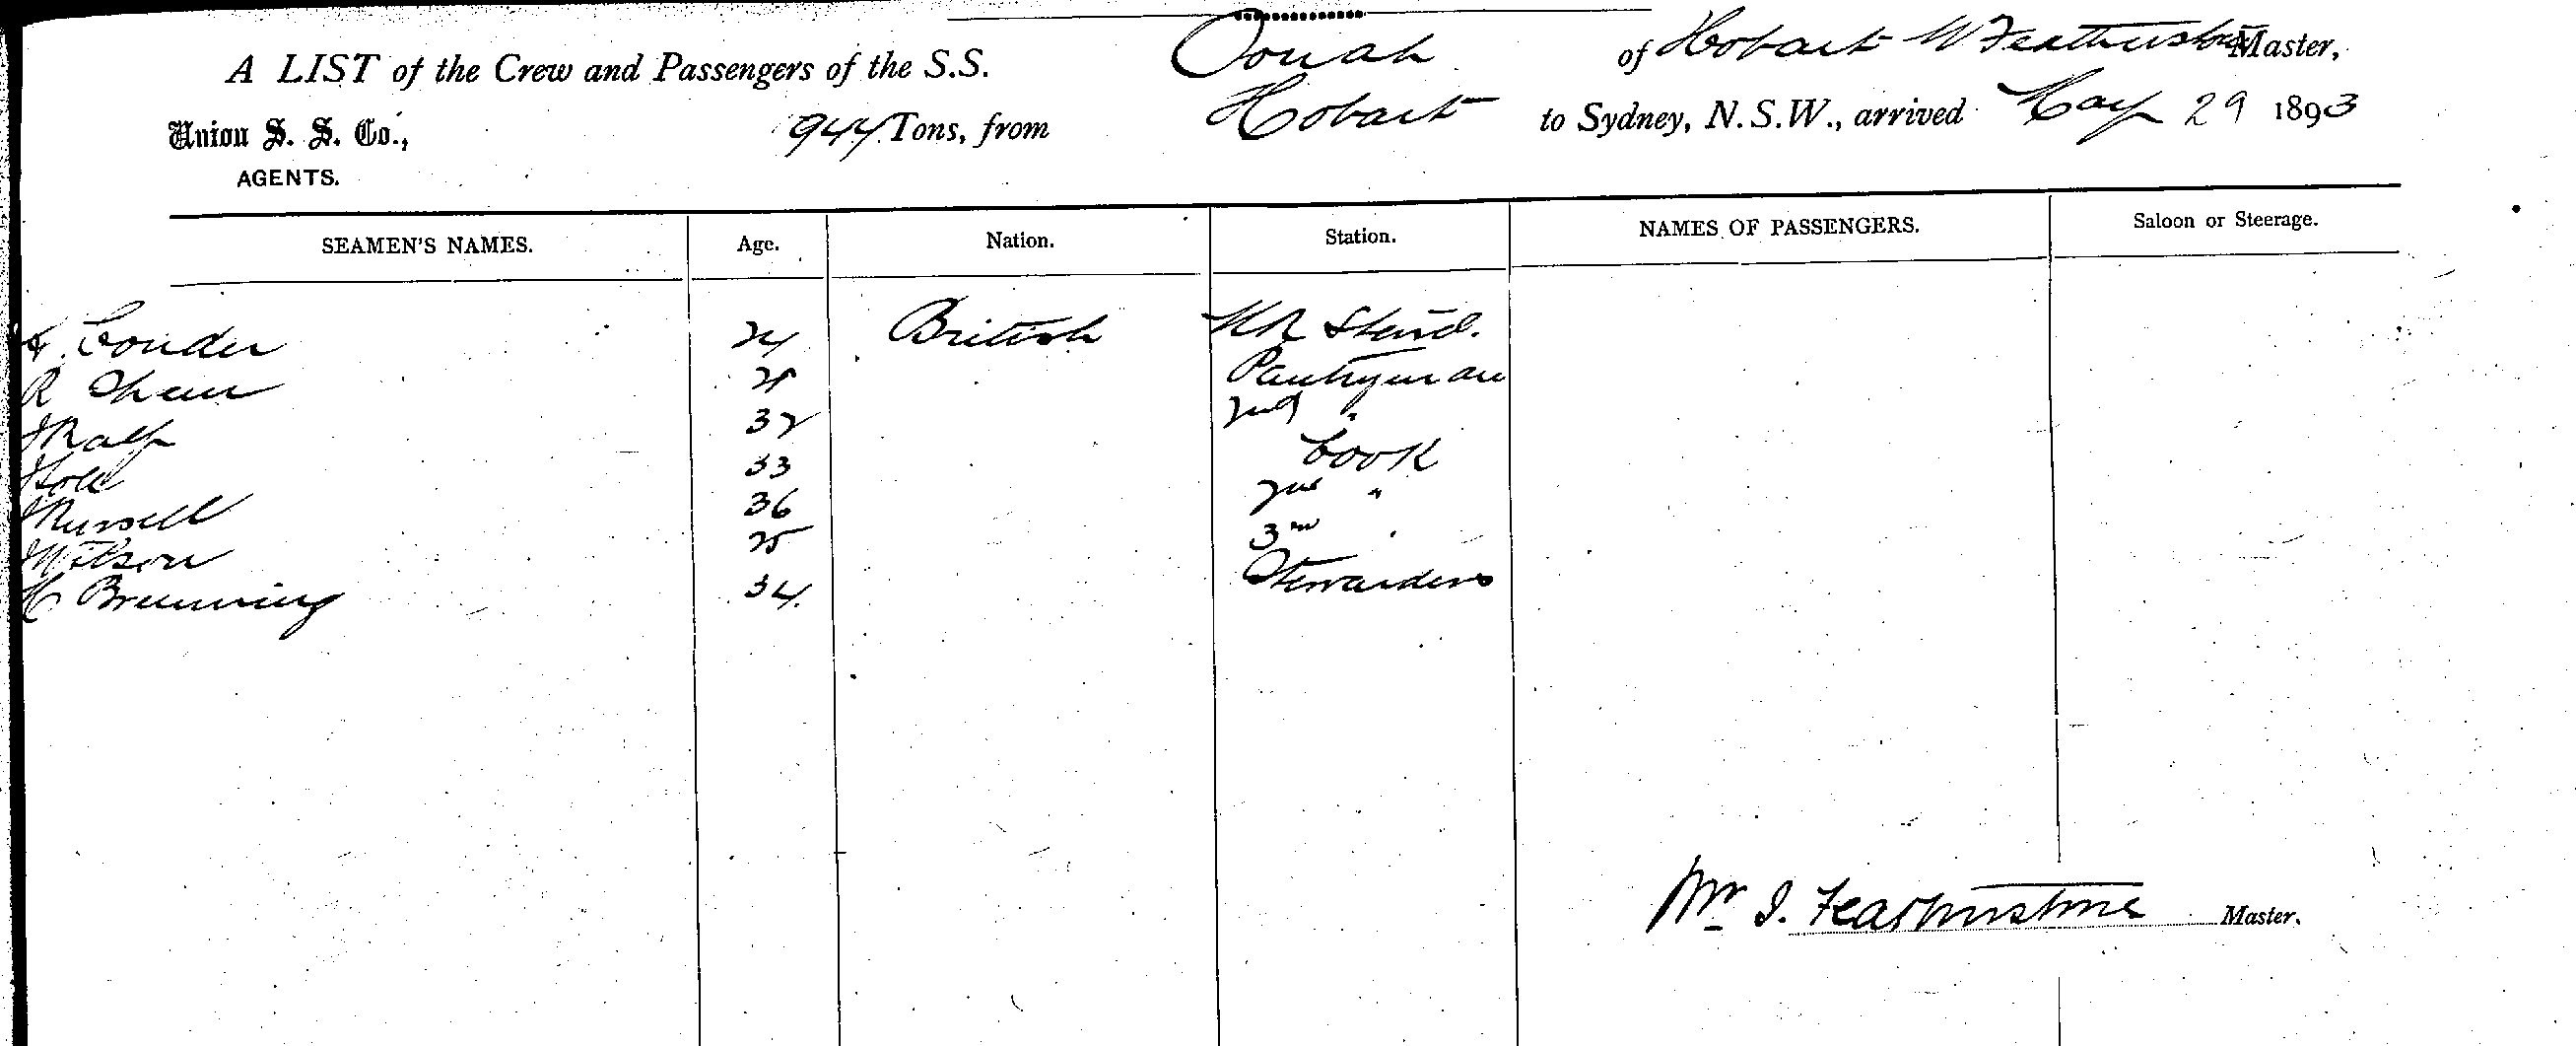 A LIST of the Crew and Passengers of the S.S. Oonah of Hobart W Featherstone Master,
Union S. S. Co., 944 Tons, from Hobart to Sydney, N.S.W., arrived May 29 1893
AGENTS.
SEAMEN'S NAMES. Age. Nation. Station. NAMES OF PASSENGERS. Saloon or Steerage.
Conder 24 British Stewd.
R Shaw Pantryman
J Ralph 32 2nd "
33 Cook
J Russell 36 2nd "
Wilson 25 3rd
H Brunning 34. Stewardess
Featherstone Master.